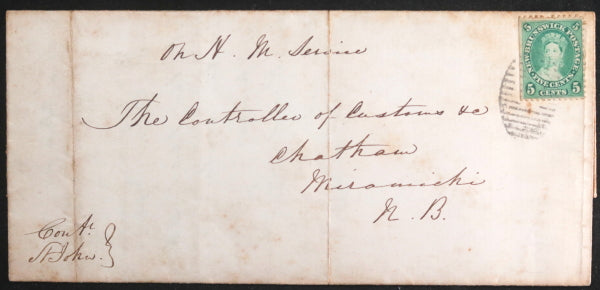 On H. M. Service
5 NEW BRUNSWICK POSTAGE 5
5 FIVE CENTS 5
CENTS
The Controller of Customs &c
Chatham
Miramichi
N. B.
Con^tr.
St John.